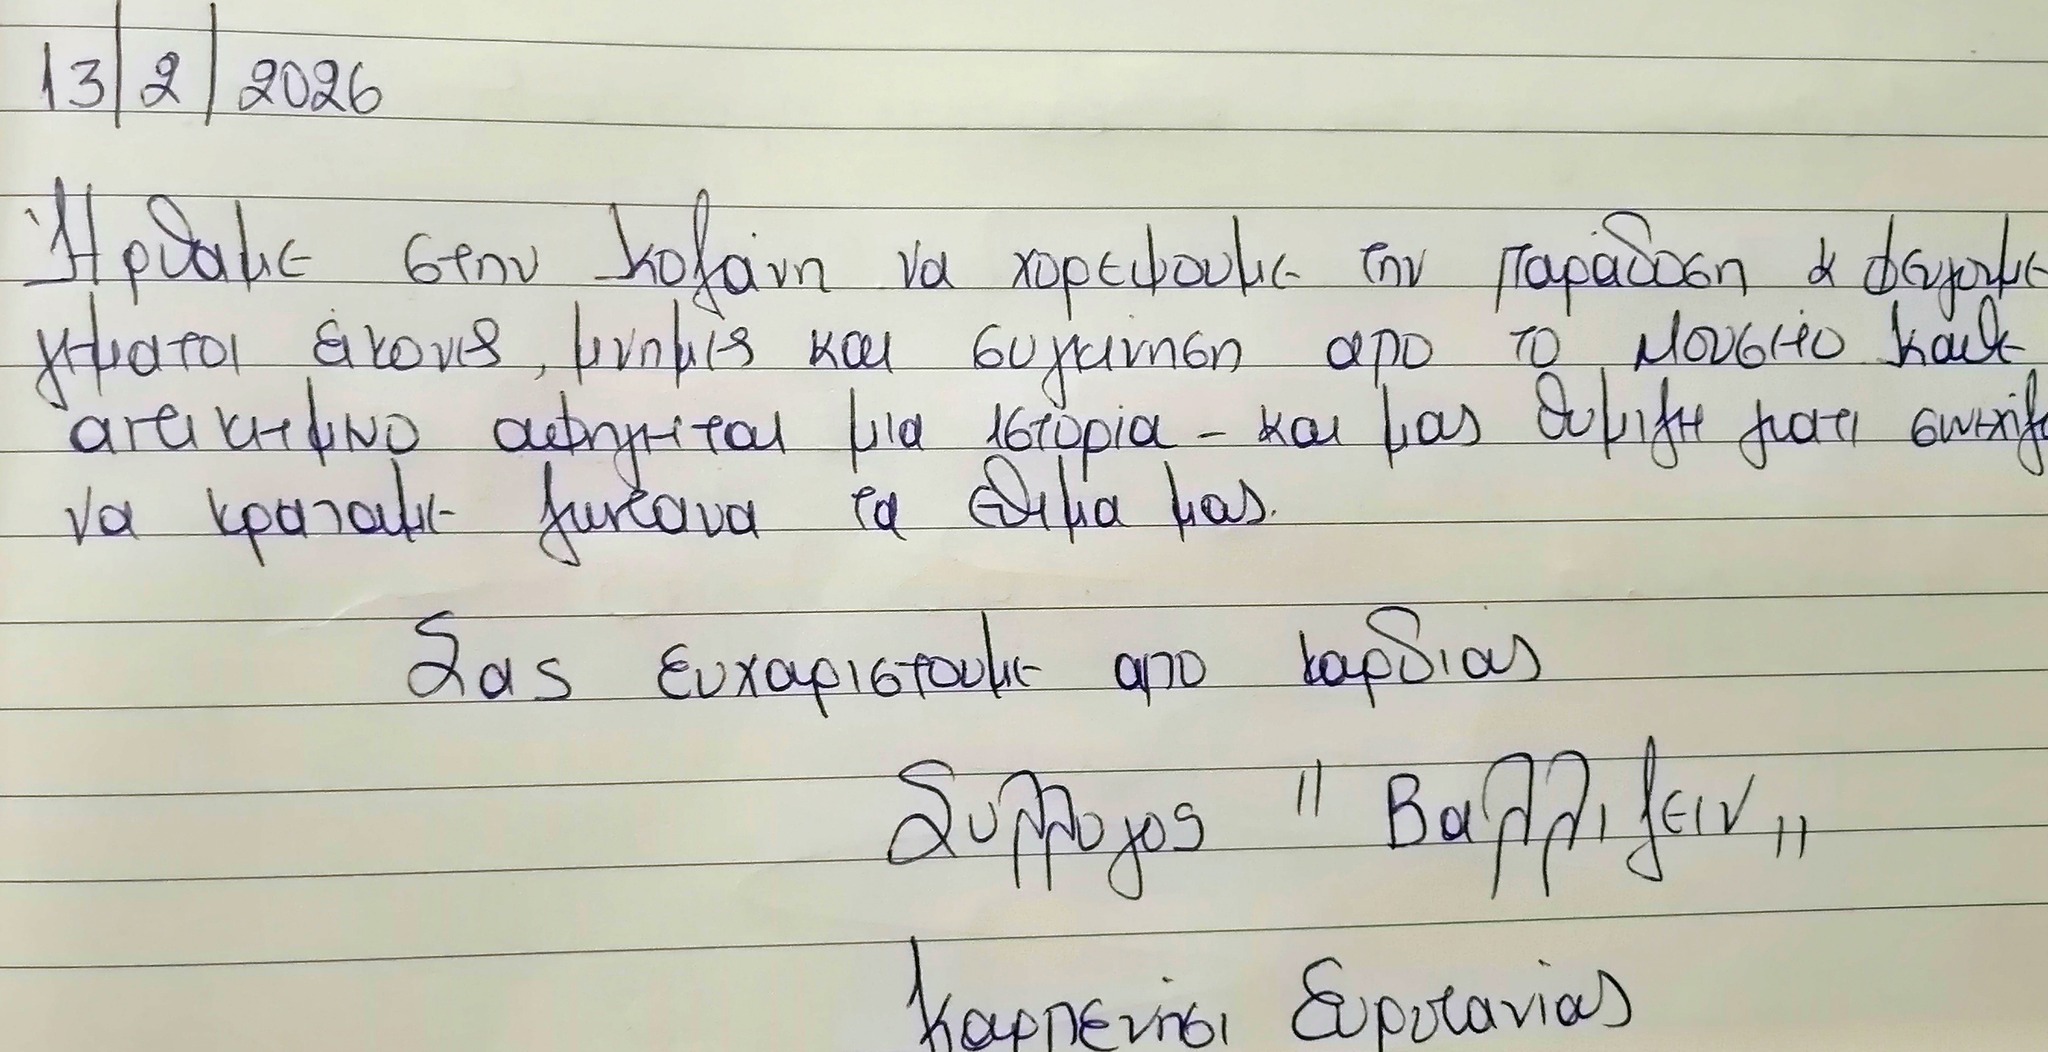 13/2/2026
Ήρθαμε στην Κοζάνη να χορεψουμε την παράδοση & φεύγουμε
γεματοι εικονες, μνημες και συγκινηση απο το μουσειο καθε
αντικειμενο αφηγειται μια ιστορία - και μας θυμιζει γιατι συνεχιζ
να κραταμε ζωντανα τα έθιμα μας.
Σας ευχαριστουμε απο καρδιας
Συλλογος "Βαλλιζειν"
Καρπενήσι Ευρυτανίας